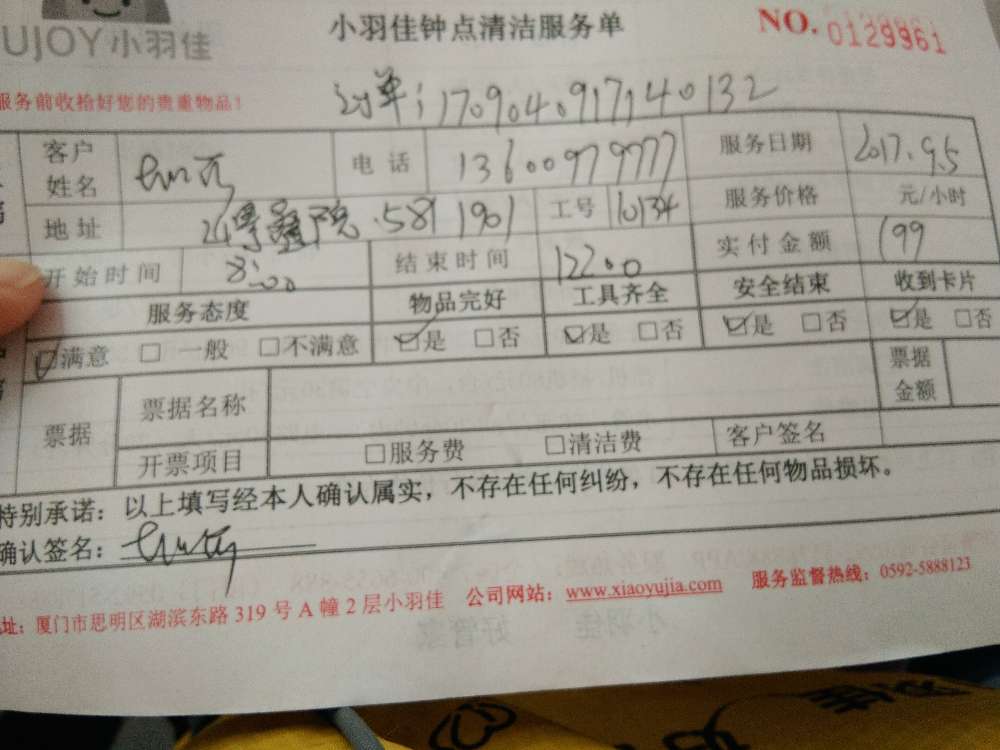 UJOY小羽佳
小羽佳钟点清洁服务单
NO. 0129961
服务前收拾好您的贵重物品!
订单:170904091714 0132
客户姓名 电话 13600979777 服务日期 2017.9.5
地址 院.581 1901 工号 10134 服务价格 元/小时
开始时间 8:00 结束时间 12:00 实付金额 199
服务态度 物品完好 工具齐全 安全结束 收到卡片
☑满意 □一般 □不满意 ☑是 □否 ☑是 □否 ☑是 □否 ☑是 □否
票据 票据名称 票据金额
开票项目 □服务费 □清洁费 客户签名
特别承诺:以上填写经本人确认属实,不存在任何纠纷,不存在任何物品损坏。
确认签名:
地址:厦门市思明区湖滨东路 319 号 A 幢 2 层小羽佳 公司网站:www.xiaoyujia.com 服务监督热线:0592-5888123